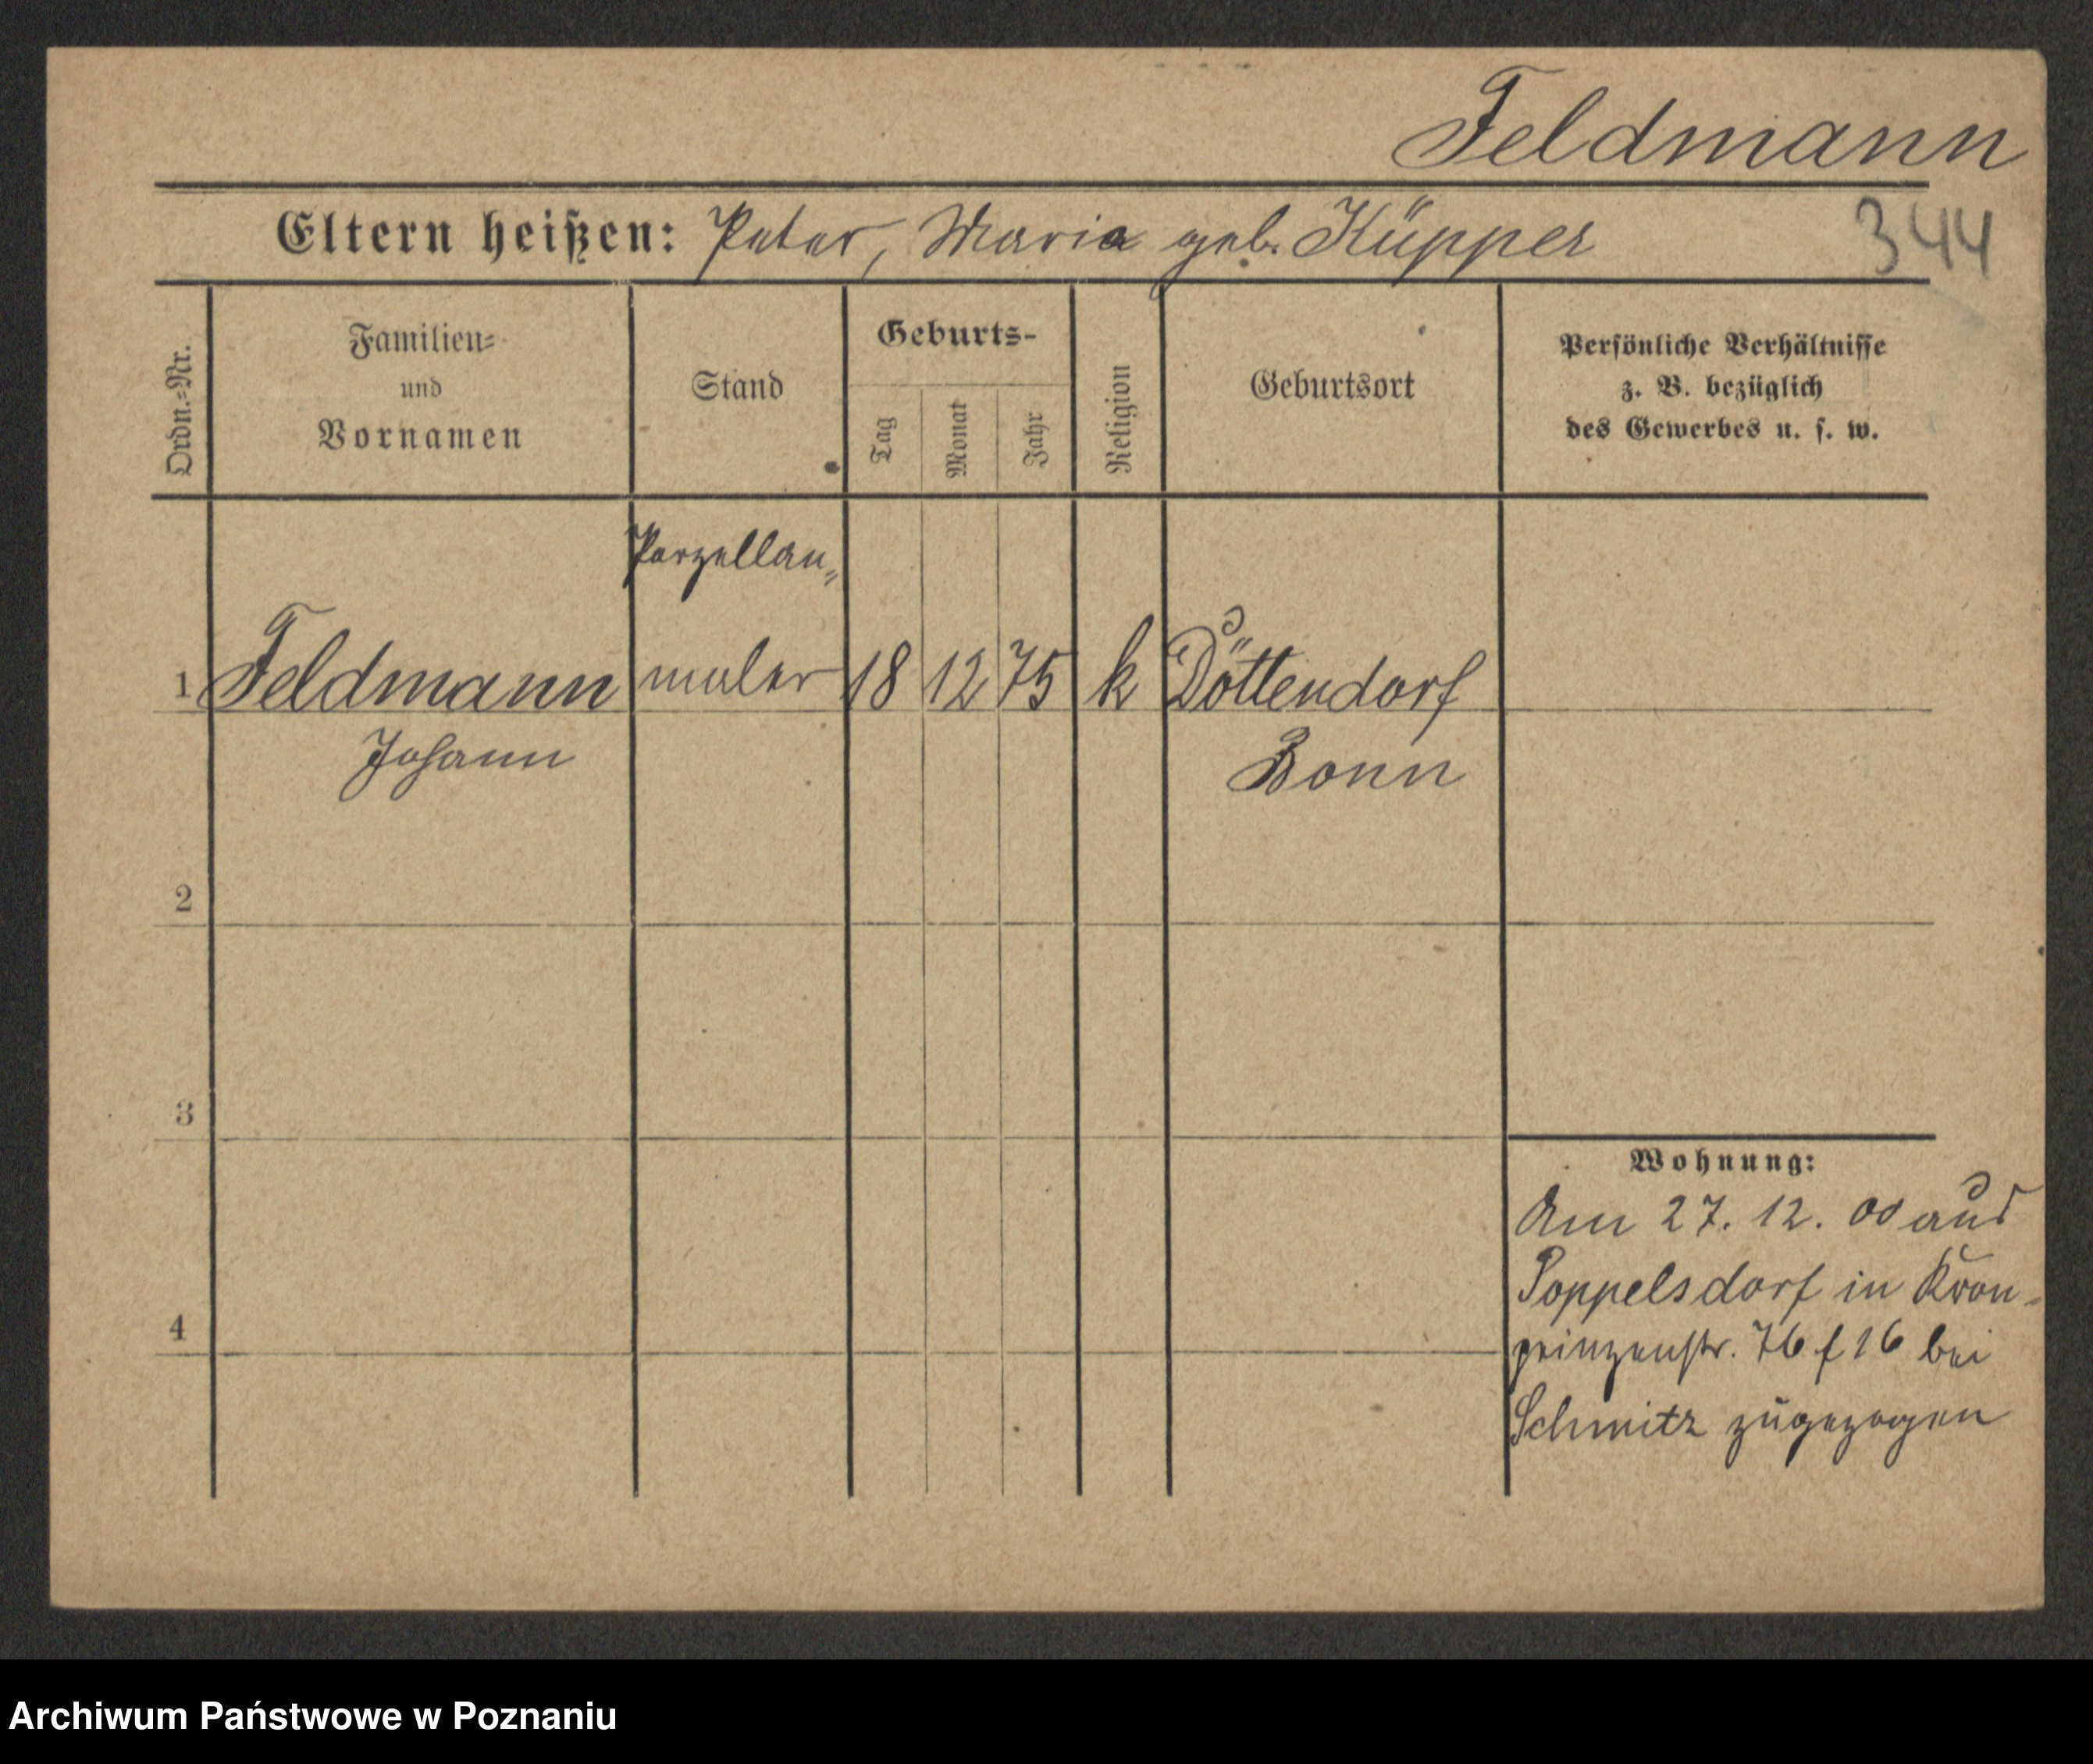 Feldmann
Eltern heißen: Peter, Maria geb. Küpper
344
Ordn.=Nr.
Familien=
und
Vornamen
Stand
Geburts-
Tag
Monat
Jahr
Religion
Geburtsort
Persönliche Verhältnisse
z. B. bezüglich
des Gewerbes u. s. w.
Porzellan=
1 Feldmann maler 18 12 75 k Döttendorf
Johann Bonn
2
3
Wohnung:
Am 27. 12. 00 aus
Poppelsdorf in Kron-
4
prinzenstr. 76 f 16 bei
Schmitz zugezogen
Archiwum Państwowe w Poznaniu